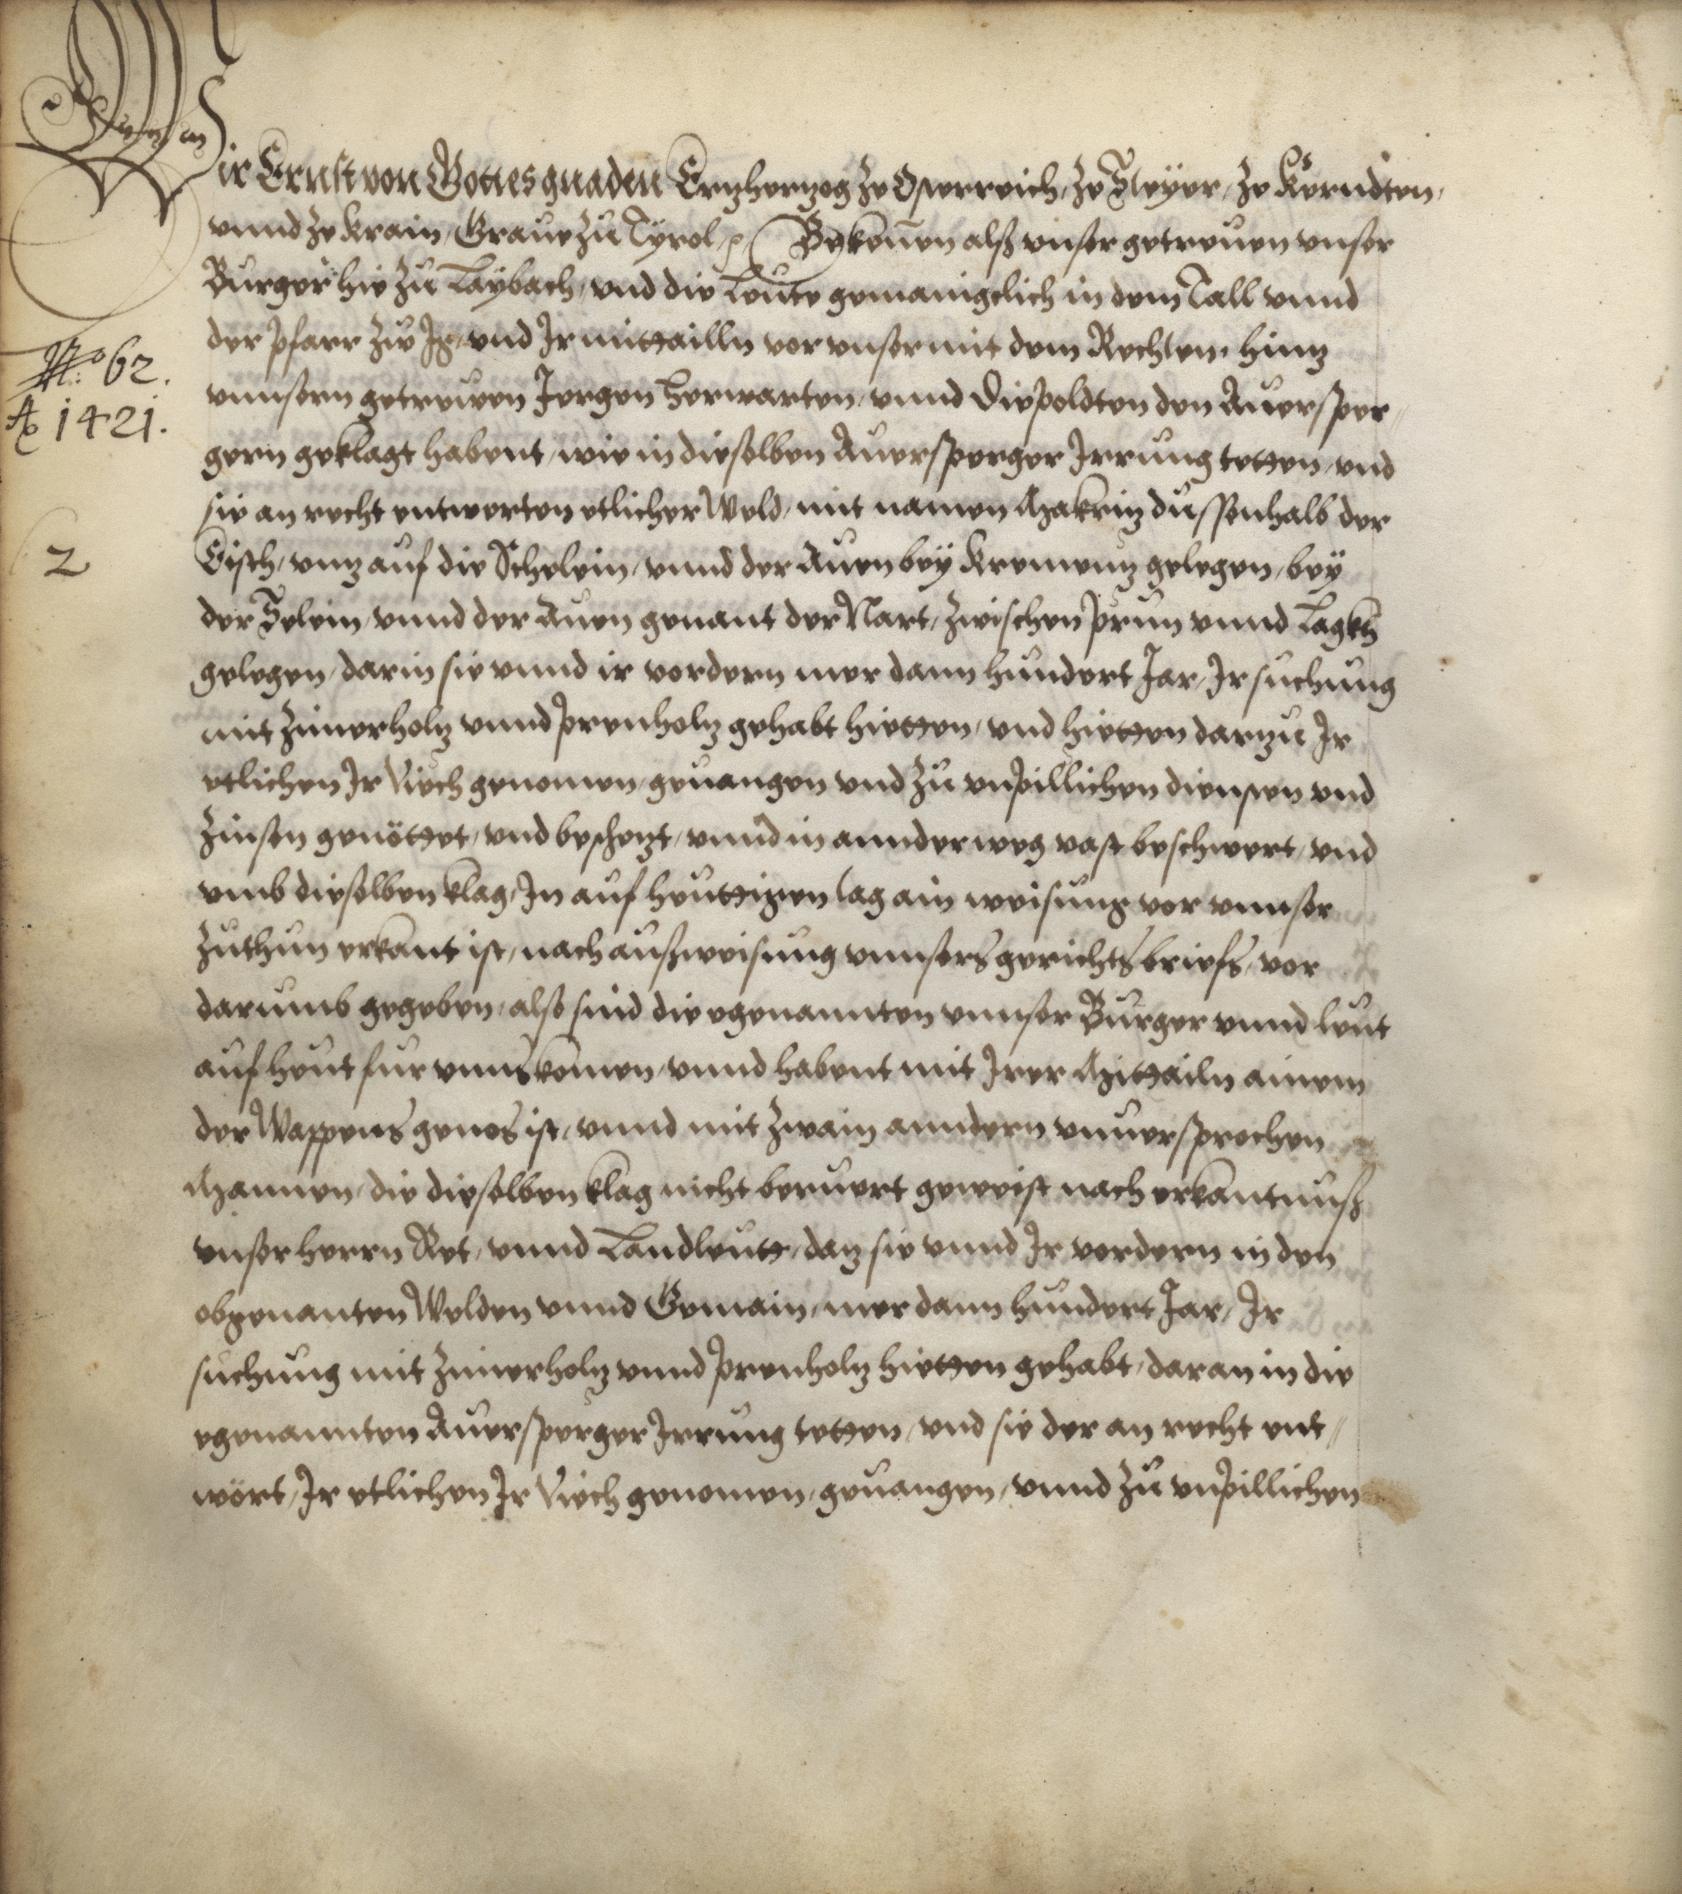 Wir Ernst von Gottes gnaden Ertzhertzog ze Osterreich, ze Steyer, ze Kerndten,
vnnd ze Krain, Graue zu Tyrol ꝛc. Bekennen alß vnser getreuen vnser
Burger hie zu Laybach, vnd die Leute gemainigclich in dem Tall vnnd
der Pfarr zw Ig, vnd Ir mittailln vor vnser mit dem Rechten hintz
N:o 62.
vnnsern getrewen Jorgen Herwarten, vnnd Diepoldten den Auersper-
Aō 1421.
gern geklagt habent, wie in dieselben Auersperger Irrung tetten, vnd
sie an recht entwerten etlicher Weld, mit namen Makritz dissenhalb der
2
Eisch, vntz auf die Schelein, vnnd der Auen bey Krementz gelegen, bey
der Selein, vnnd der Auen genant der Nart, zwischen Prun vnnd Lagkh
gelegen, darin sie vnnd ir vordern mer dann hundert Jar, Ir suchung
mit Zimerholtz vnnd Prenholtz gehabt hietten, vnd hietten dartzu Ir
etlichen Ir Viech genomen, geuangen vnd zu vnpillichen diensten vnd
Zinsen genöttet, vnd beschetzt, vnnd in annder weg vast beschwert, vnd
vmb dieselben klag, In auf heuttigen tag ain weisung vor vnnser
zuthun erkant ist, nach außweisung vnnsers gerichtsbriefs, vor
darumb gegeben, also sind die egenannten vnnser Burger vnnd leut
auf heut fur vnns komen, vnnd habent mit Irer Mittailn ainem
der Wappens genos ist, vnnd mit zwain anndern vnuersprochen
Mannen, die dieselben klag nicht beruert geweist nach erkantnuß
vnser herrn Ret, vnnd Landleutt, daz sie vnnd Ir vordern in den
obgenanten Welden vnnd Gemain, mer dann hundert Jar, Ir
suchung mit Zimerholtz vnnd Prenholtz hietten gehabt, daran in die
egenannten Auersperger Irrung tetten, vnd sie der an recht ent-
wört, Ir etlichen Ir Viech genomen, geuangen, vnnd zu vnpillichen